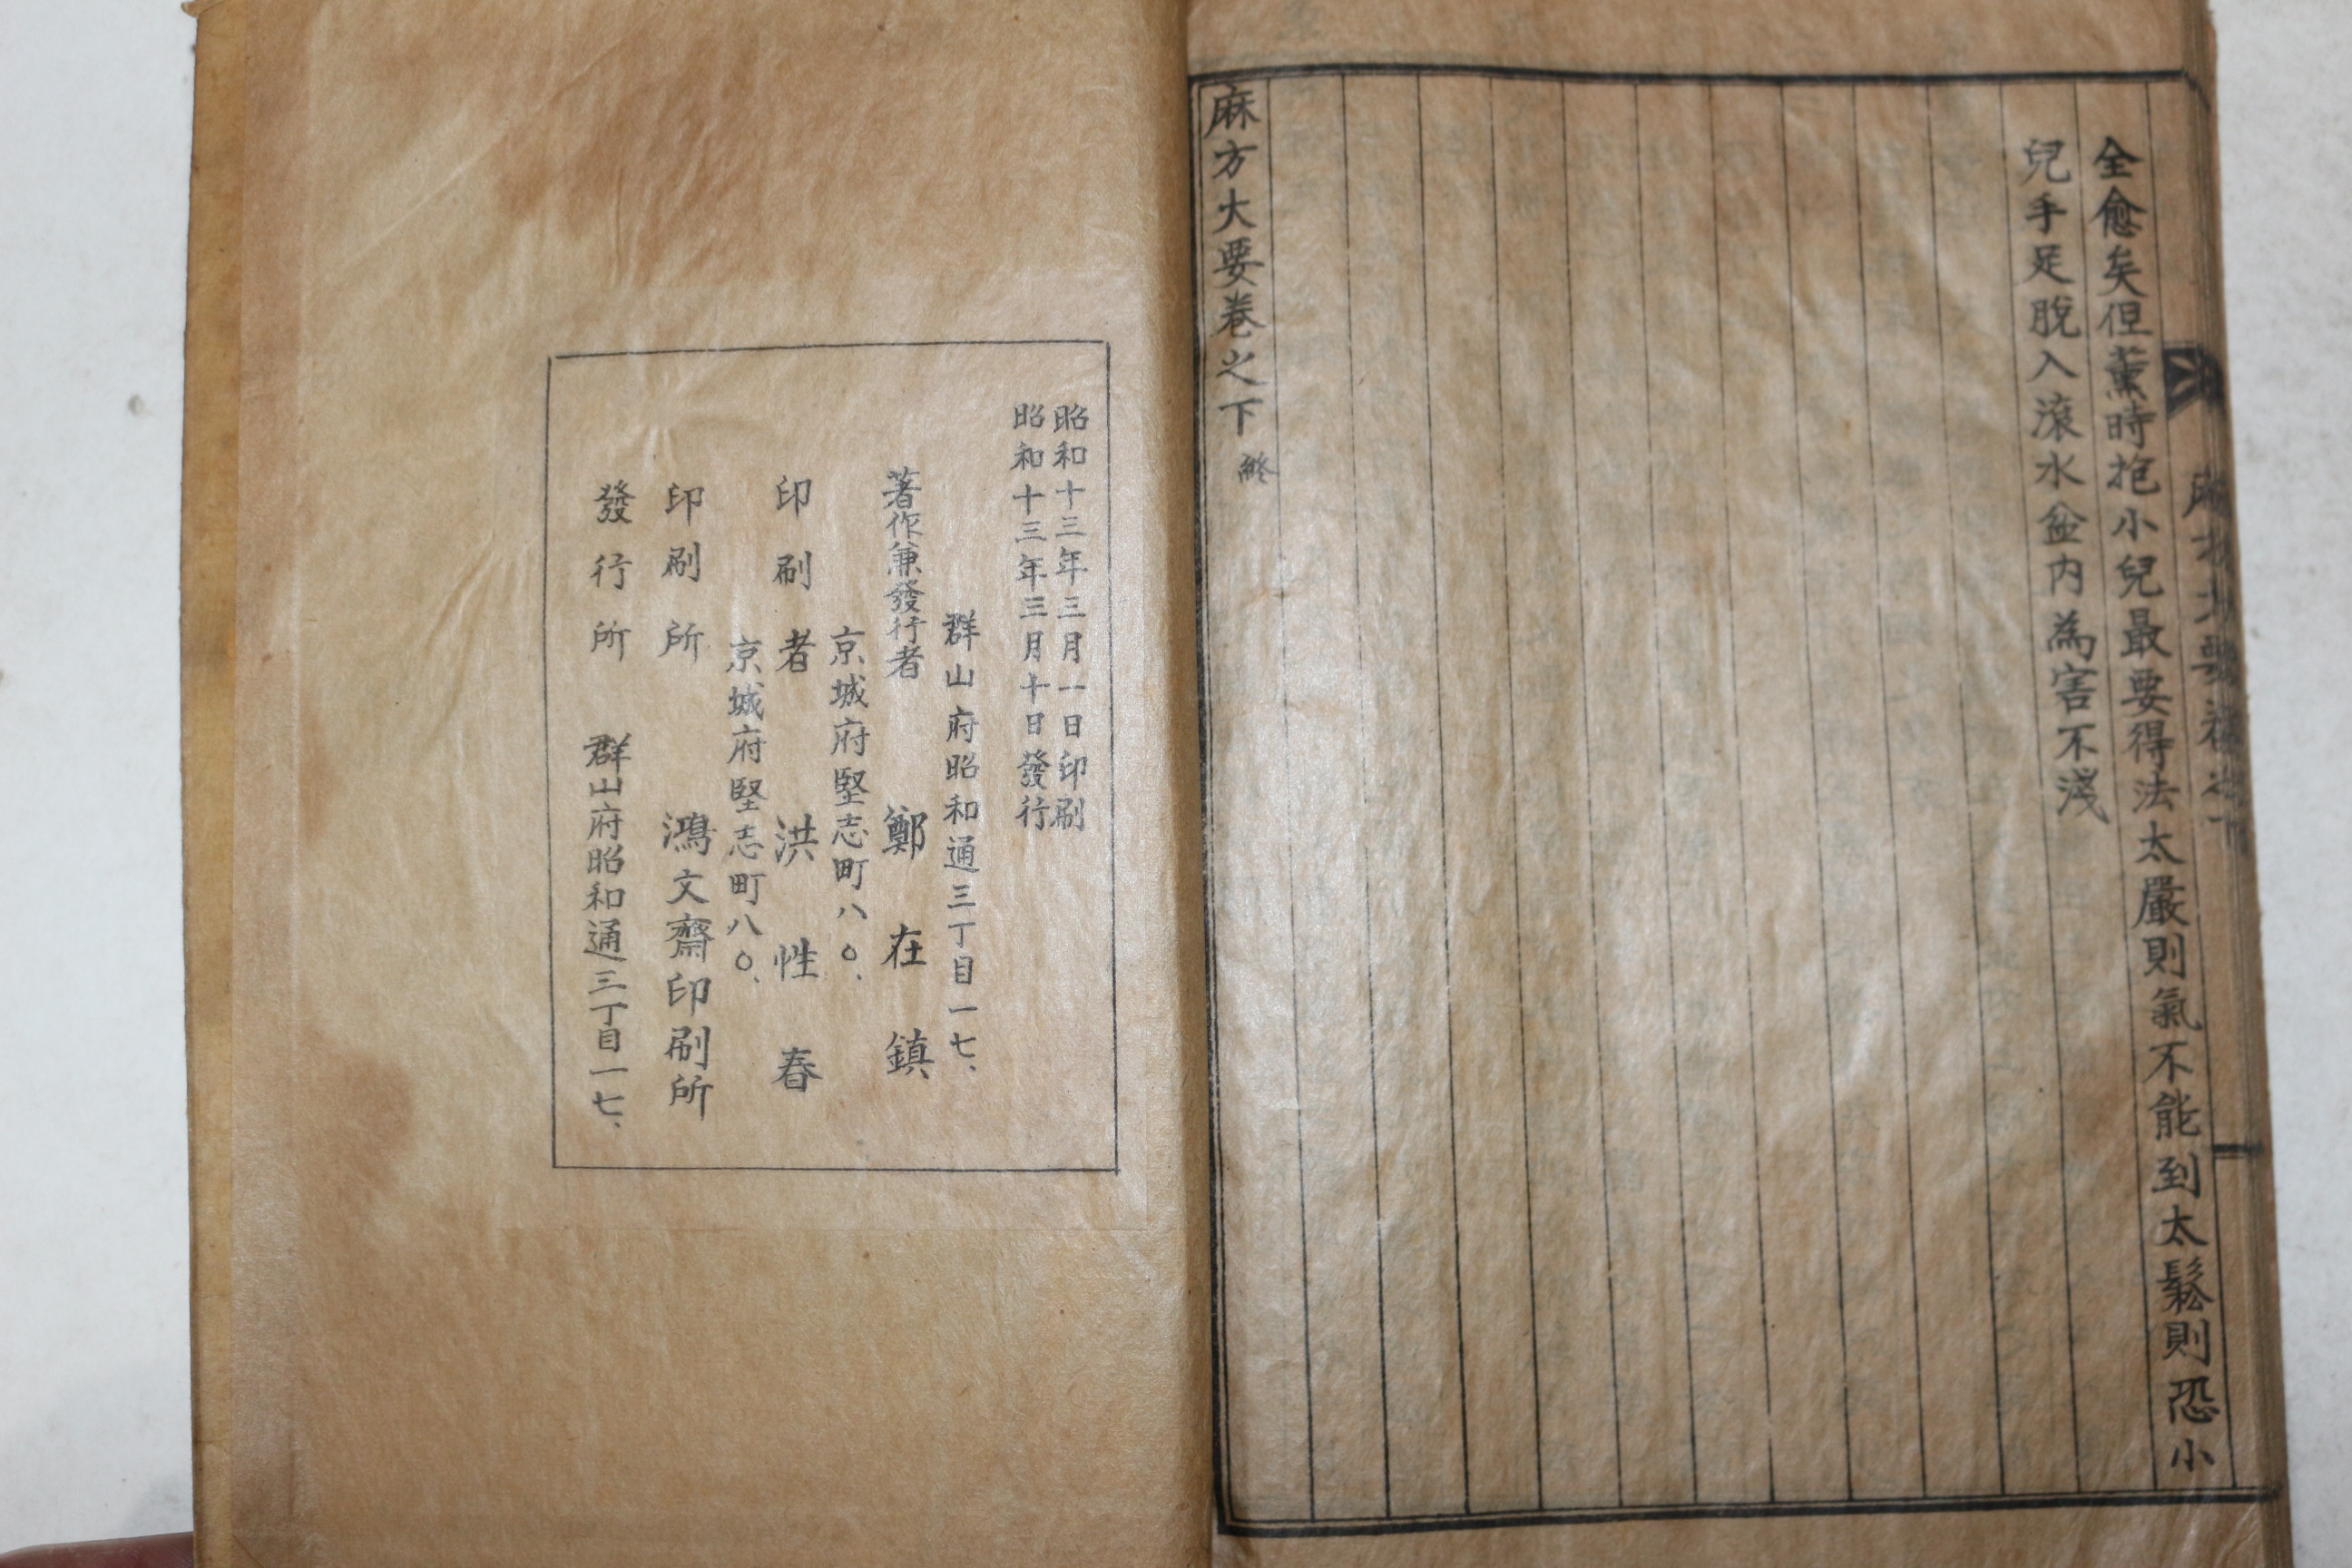 全愈矣但薰時抱小兒最要得法太嚴則氣不能到太鬆則恐小
兒手足脫入滾水盆內為害不淺
麻方大要卷之下 終
昭和十三年三月一日印刷
昭和十三年三月十日發行
群山府昭和通三丁目一七、
著作兼發行者 鄭在鎮
京城府堅志町八〇、
印刷者 洪性春
京城府堅志町八〇、
印刷所 鴻文齋印刷所
發行所 群山府昭和通三丁目一七、